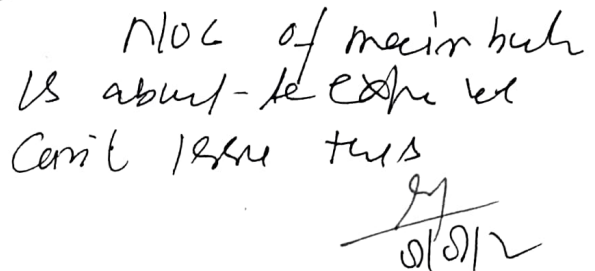 NOC of main
is about to expire we
Can't issue this